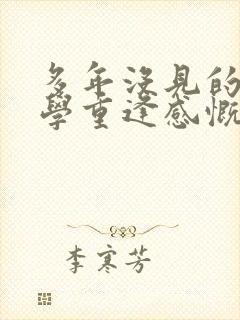 多年沒見的
學重逢感慨
李寒芳